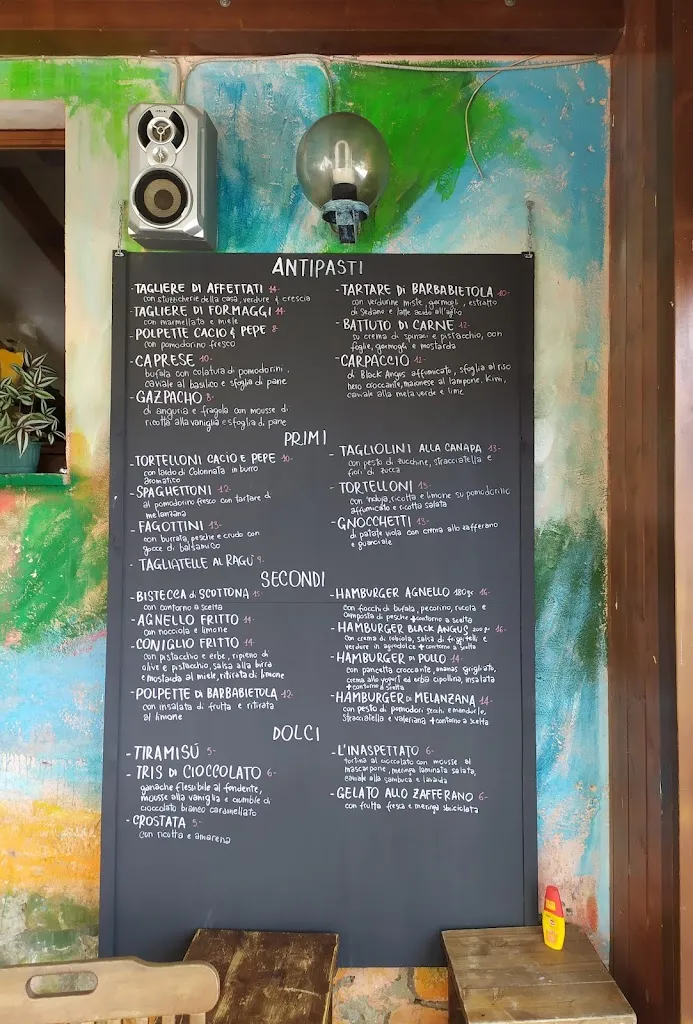 ANTIPASTI
- TAGLIERE DI AFFETTATI 14-
con stuzzicherie della casa, verdure & crescia
TAGLIERE DI FORMAGGI 14-
con marmellata e miele
- POLPETTE CACIO & PEPE 8-
con pomodorino fresco
- CAPRESE 10-
bufala con colatura di pomodorini,
caviale al basilico e sfoglia di pane
- GAZPACHO 8-
di anguria e fragola con mousse di
ricotta alla vaniglia e sfoglia di pane
- TARTARE DI BARBABIETOLA 10-
con verdurine miste, germogli, estratto
di sedano e latte acido all'aglio
- BATTUTO DI CARNE 12-
su crema di spinaci e pistacchio, con
foglie, germogli e mostarda
- CARPACCIO 12-
di Black Angus affumicato, sfoglia al riso
nero croccante, maionese al lampone, Kimi,
caviale alla mela verde e lime
PRIMI
- TORTELLONI CACIO E PEPE 10-
con lardo di Colonnata in burro
aromatico
- SPAGHETTONI 12-
al pomodorino fresco con tartare di
melanzana
- FAGOTTINI 13-
con burrata, pesche e crudo con
gocce di balsamico
- TAGLIATELLE AL RAGÙ 9-
- TAGLIOLINI ALLA CANAPA 13-
con pesto di zucchine, stracciatella e
fiori di zucca
- TORTELLONI 13-
con 'nduja, ricotta e limone su pomodorino
affumicato e ricotta salata
- GNOCCHETTI 13-
di patate viola con crema allo zafferano
e guanciale
SECONDI
- BISTECCA di SCOTTONA 15-
con contorno a scelta
- AGNELLO FRITTO 14-
con nocciola e limone
- CONIGLIO FRITTO 14-
con pistacchio e erbe, ripieno di
olive e pistacchio, salsa alla birra
e mostarda al miele, ritirata di limone
- POLPETTE DI BARBABIETOLA 12-
con insalata di frutta e ritirata
al limone
- HAMBURGER AGNELLO 180gr 16-
con fiocchi di bufala, pecorino, rucola e
composta di pesche + contorno a scelta
- HAMBURGER BLACK ANGUS 200gr 16-
con crema di robiola, salsa di friggitelli e
verdure in agrodolce + contorno a scelta
- HAMBURGER DI POLLO 14-
con pancetta croccante, ananas grigliato,
crema allo yogurt ed erba cipollina, insalata
+ contorno a scelta
- HAMBURGER DI MELANZANA 14-
con pesto di pomodori secchi e mandorle,
stracciatella e valeriana + contorno a scelta
DOLCI
- TIRAMISÙ 5-
- TRIS DI CIOCCOLATO 6-
ganache flessibile al fondente,
mousse alla vaniglia e crumble di
cioccolato bianco caramellato
- CROSTATA 5-
con ricotta e amarena
- L'INASPETTATO 6-
tortina al cioccolato con mousse al
mascarpone, meringa laminata salata,
caviale alla sambuca e lavanda
- GELATO ALLO ZAFFERANO 6-
con frutta fresca e meringa sbriciolata